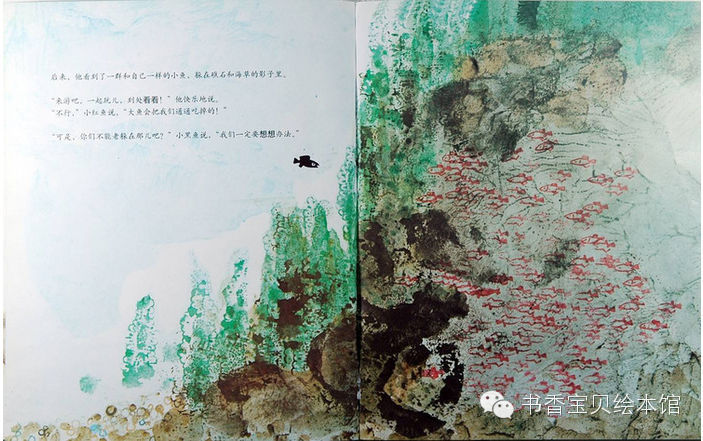 后来，他看到了一群和自己一样的小鱼，躲在礁石和海草的影子里。
“来游吧，一起玩儿，到处看看！”他快乐地说。
“不行，”小红鱼说，“大鱼会把我们通通吃掉的！”
“可是，你们不能老躲在那儿吧？”小黑鱼说，“我们一定要想想办法。”
书香宝贝绘本馆